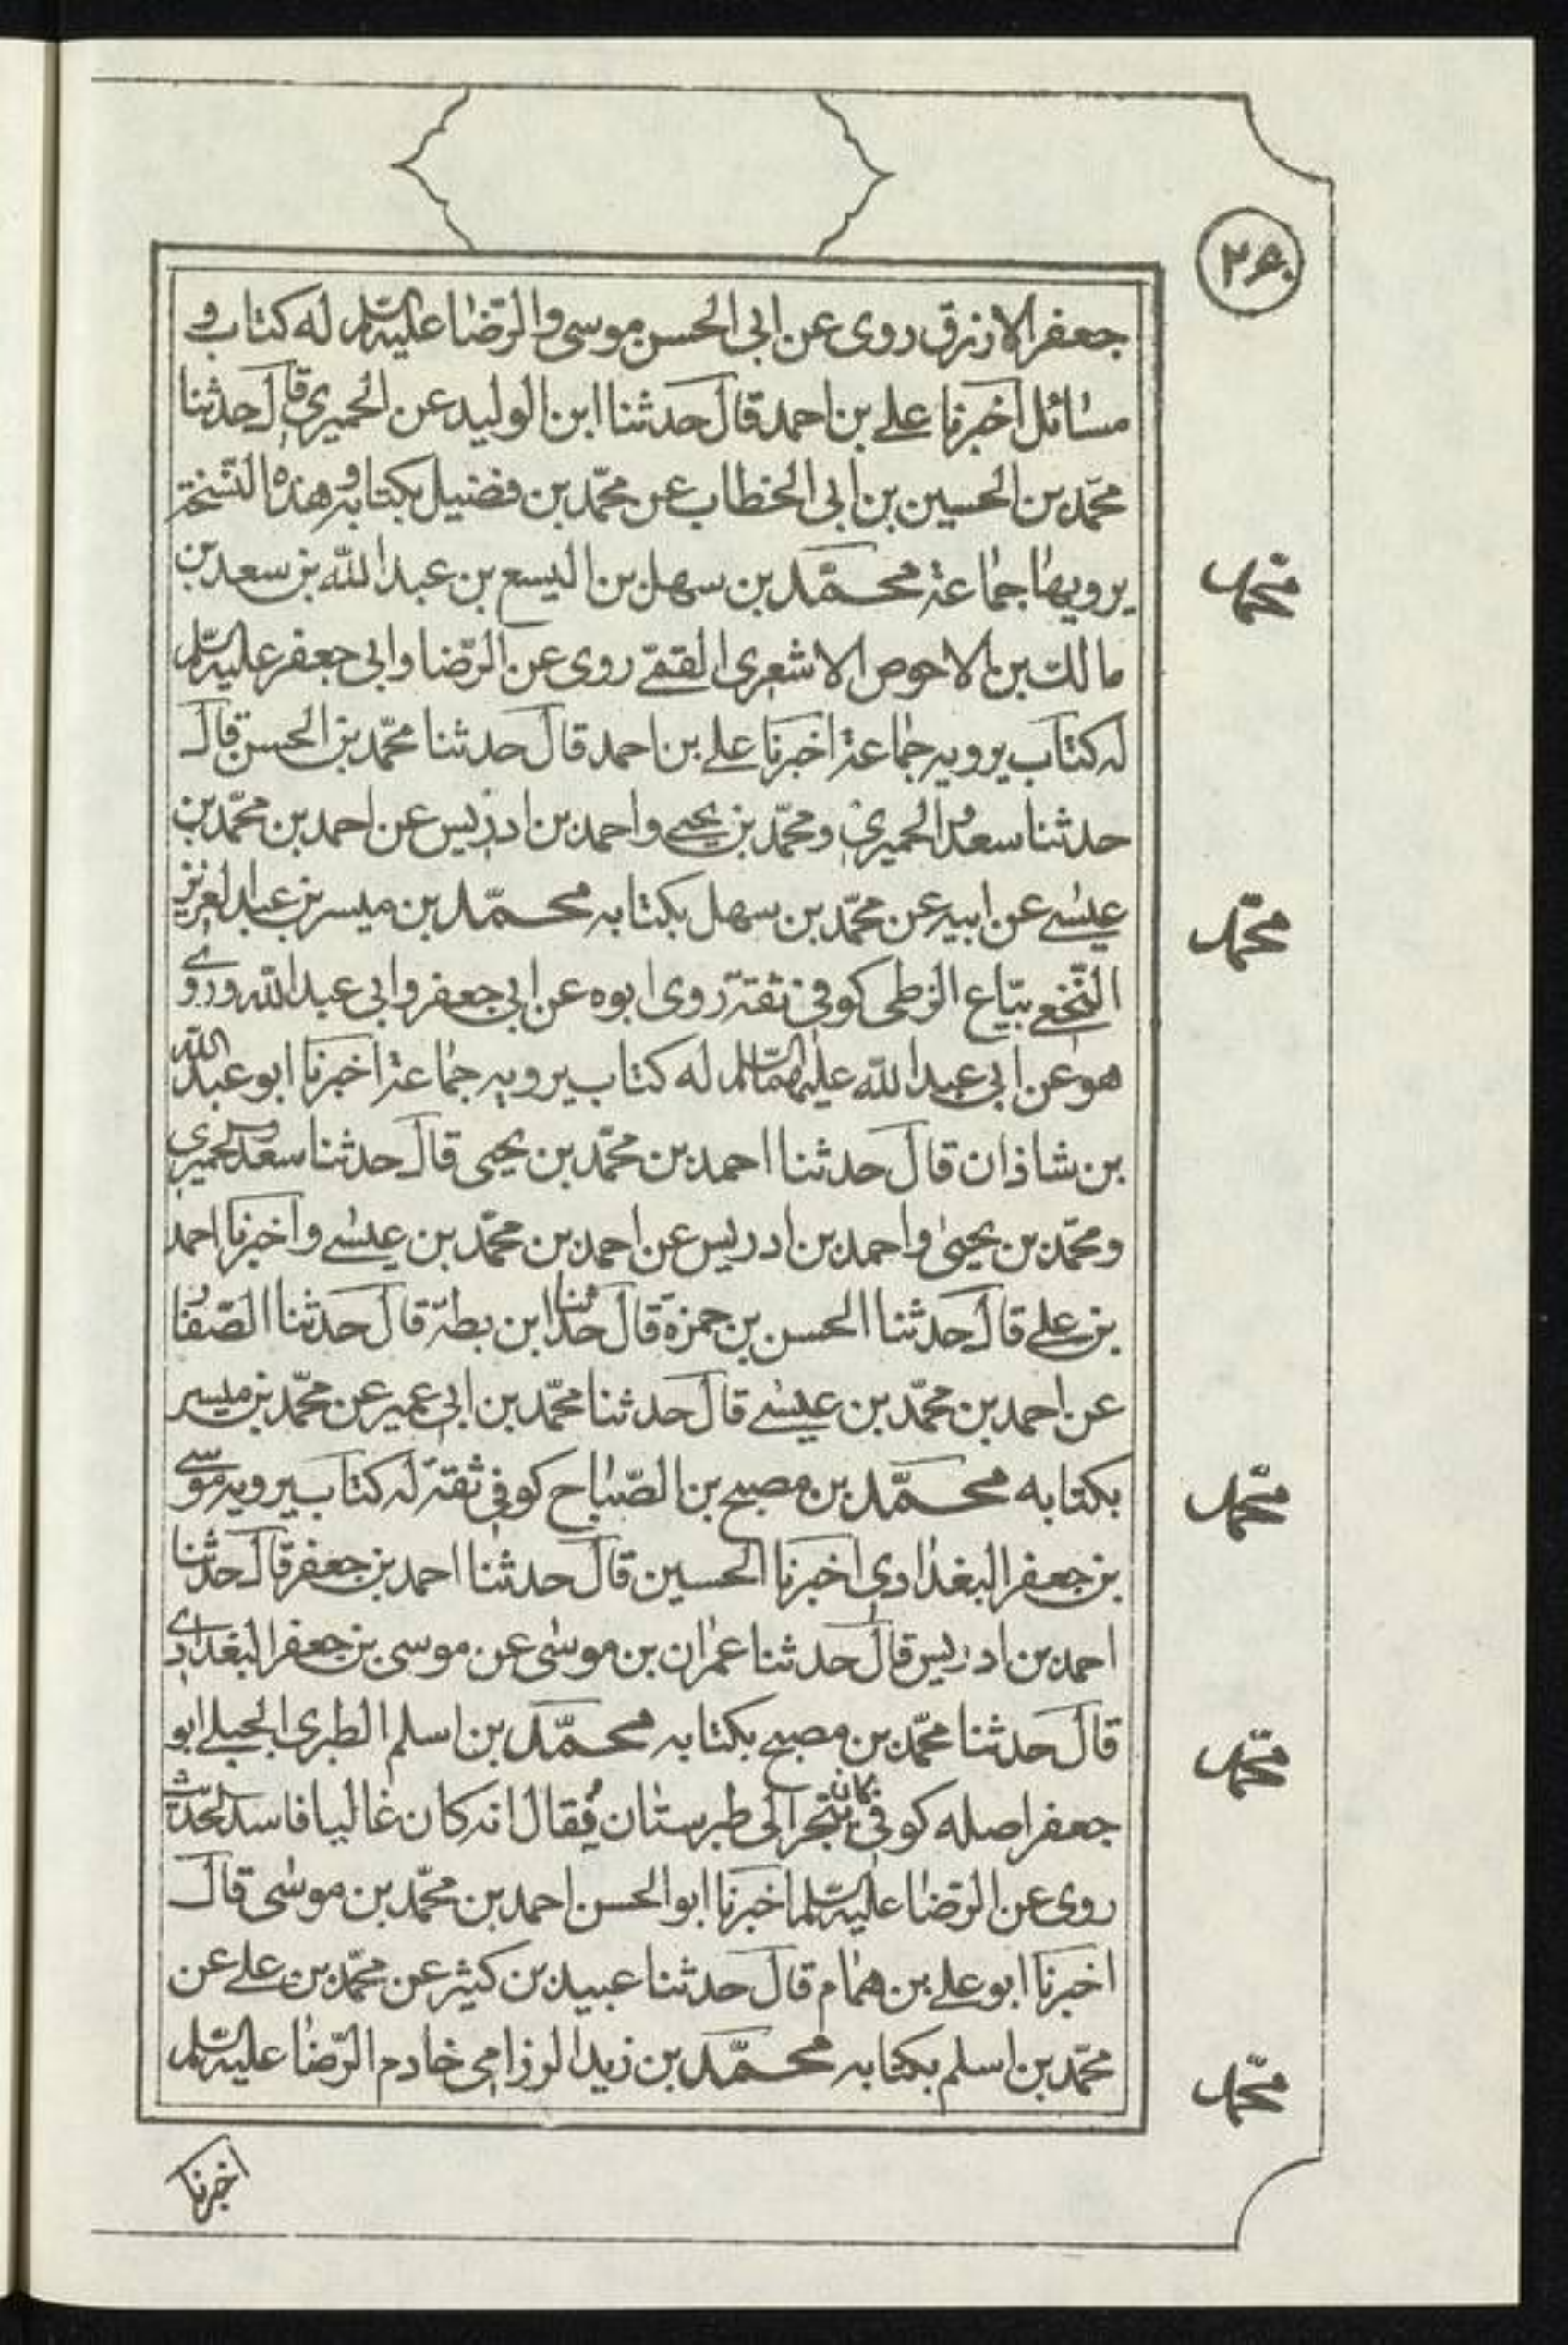 ۲۶۰
جعفر الازرق روى عن ابى الحسن موسى والرّضا عليهالسّلم له كتاب و
مسائل اخبرنا على بن احمد قال حدثنا ابن الوليد عن الحميرى قال حدثنا
محمّد بن الحسين بن ابى الخطاب عن محمّد بن فضيل بكتابه وهذه النّسخة
يرويها جماعة محمّد بن سهل بن اليسع بن عبدالله بن سعد بن
مالك بن الاحوص الاشعرى القمّى روى عن الرّضا وابى جعفر عليهالسّلم
له كتاب يرويه جماعة اخبرنا على بن احمد قال حدثنا محمّد بن الحسن قال
حدثنا سعد والحميرى ومحمّد بن يحيى واحمد بن ادريس عن احمد بن محمّد بن
عيسى عن ابيه عن محمّد بن سهل بكتابه محمّد بن ميسر بن عبدالعزيز
النّخعى بيّاع الزطى كوفى ثقة روى ابوه عن ابى جعفر وابى عبدالله وروى
هو عن ابى عبدالله عليهماالسّلم له كتاب يرويه جماعة اخبرنا ابو عبدالله
بن شاذان قال حدثنا احمد بن محمّد بن يحيى قال حدثنا سعد والحميرى
ومحمّد بن يحيى واحمد بن ادريس عن احمد بن محمّد بن عيسى واخبرنا احمد
بن على قال حدثنا الحسن بن حمزة قال حدثنا ابن بطة قال حدثنا الصّفار
عن احمد بن محمّد بن عيسى قال حدثنا محمّد بن ابى عمير عن محمّد بن ميسر
بكتابه محمّد بن مصبح بن الصّباح كوفى ثقة له كتاب يرويه موسى
بن جعفر البغدادى اخبرنا الحسين قال حدثنا احمد بن جعفر قال حدثنا
احمد بن ادريس قال حدثنا عمران بن موسى عن موسى بن جعفر البغدادى
قال حدثنا محمّد بن مصبح بكتابه محمّد بن اسلم الطبرى الجبلى ابو
جعفر اصله كوفى كان يتّجر الى طبرستان يُقال انه كان غاليا فاسد الحديث
روى عن الرّضا عليهالسّلم اخبرنا ابو الحسن احمد بن محمّد بن موسى قال
اخبرنا ابو على بن همام قال حدثنا عبيد بن كثير عن محمّد بن على عن
محمّد بن اسلم بكتابه محمّد بن زيد الرزامى خادم الرّضا عليهالسّلم
اخبرنا
محمّد
محمّد
محمّد
محمّد
محمّد